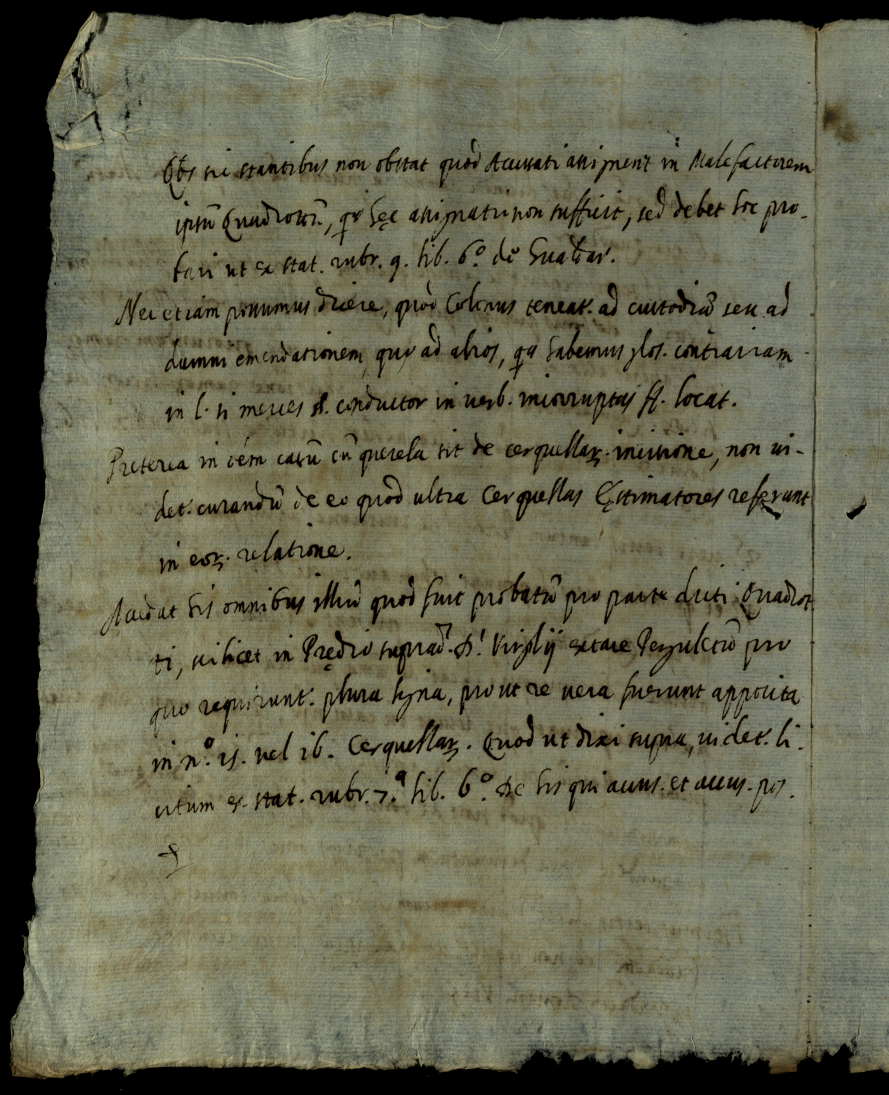 Qbs sic stantibus non obstat quòd Accusati assignent in Malefactorem
ipsũ Quadrott., qa hęc assignatio non sufficit, sed debet hoc pro-
bari ut ex stat. rubr. 9. lib. 6.º de
Nec etiam possumus dicere, quòd Colonus teneat. ad custodiã seu ad
damni emendationem quo ad alios, qa habemus glos. contrariam
in l. si merces §. conductor in verb. incorruptas ff. locat.
Preterea in casũ cũ querela sit de cerquellaꝝ incisione, non ui-
det. curandũ de eo quod ultra Cerquellas Ęstimatores referunt
in eoꝝ relatione.
Accedat his omnibus illud quod fuit probatũ pro parte dicti Quadrot
ti, uidelicet in Prędio suprad. D. Virgilij extare Pergulctũ pro
quo requirunt. plura ligna, prout re uera fuerunt apposita
in nº. 15. uel 16. Cerquellaꝝ. Quod ut dixi supra, uidet. li-
citum ex stat. rubr. 7.ª lib. 6º. de his qui accus. et accus. pos.